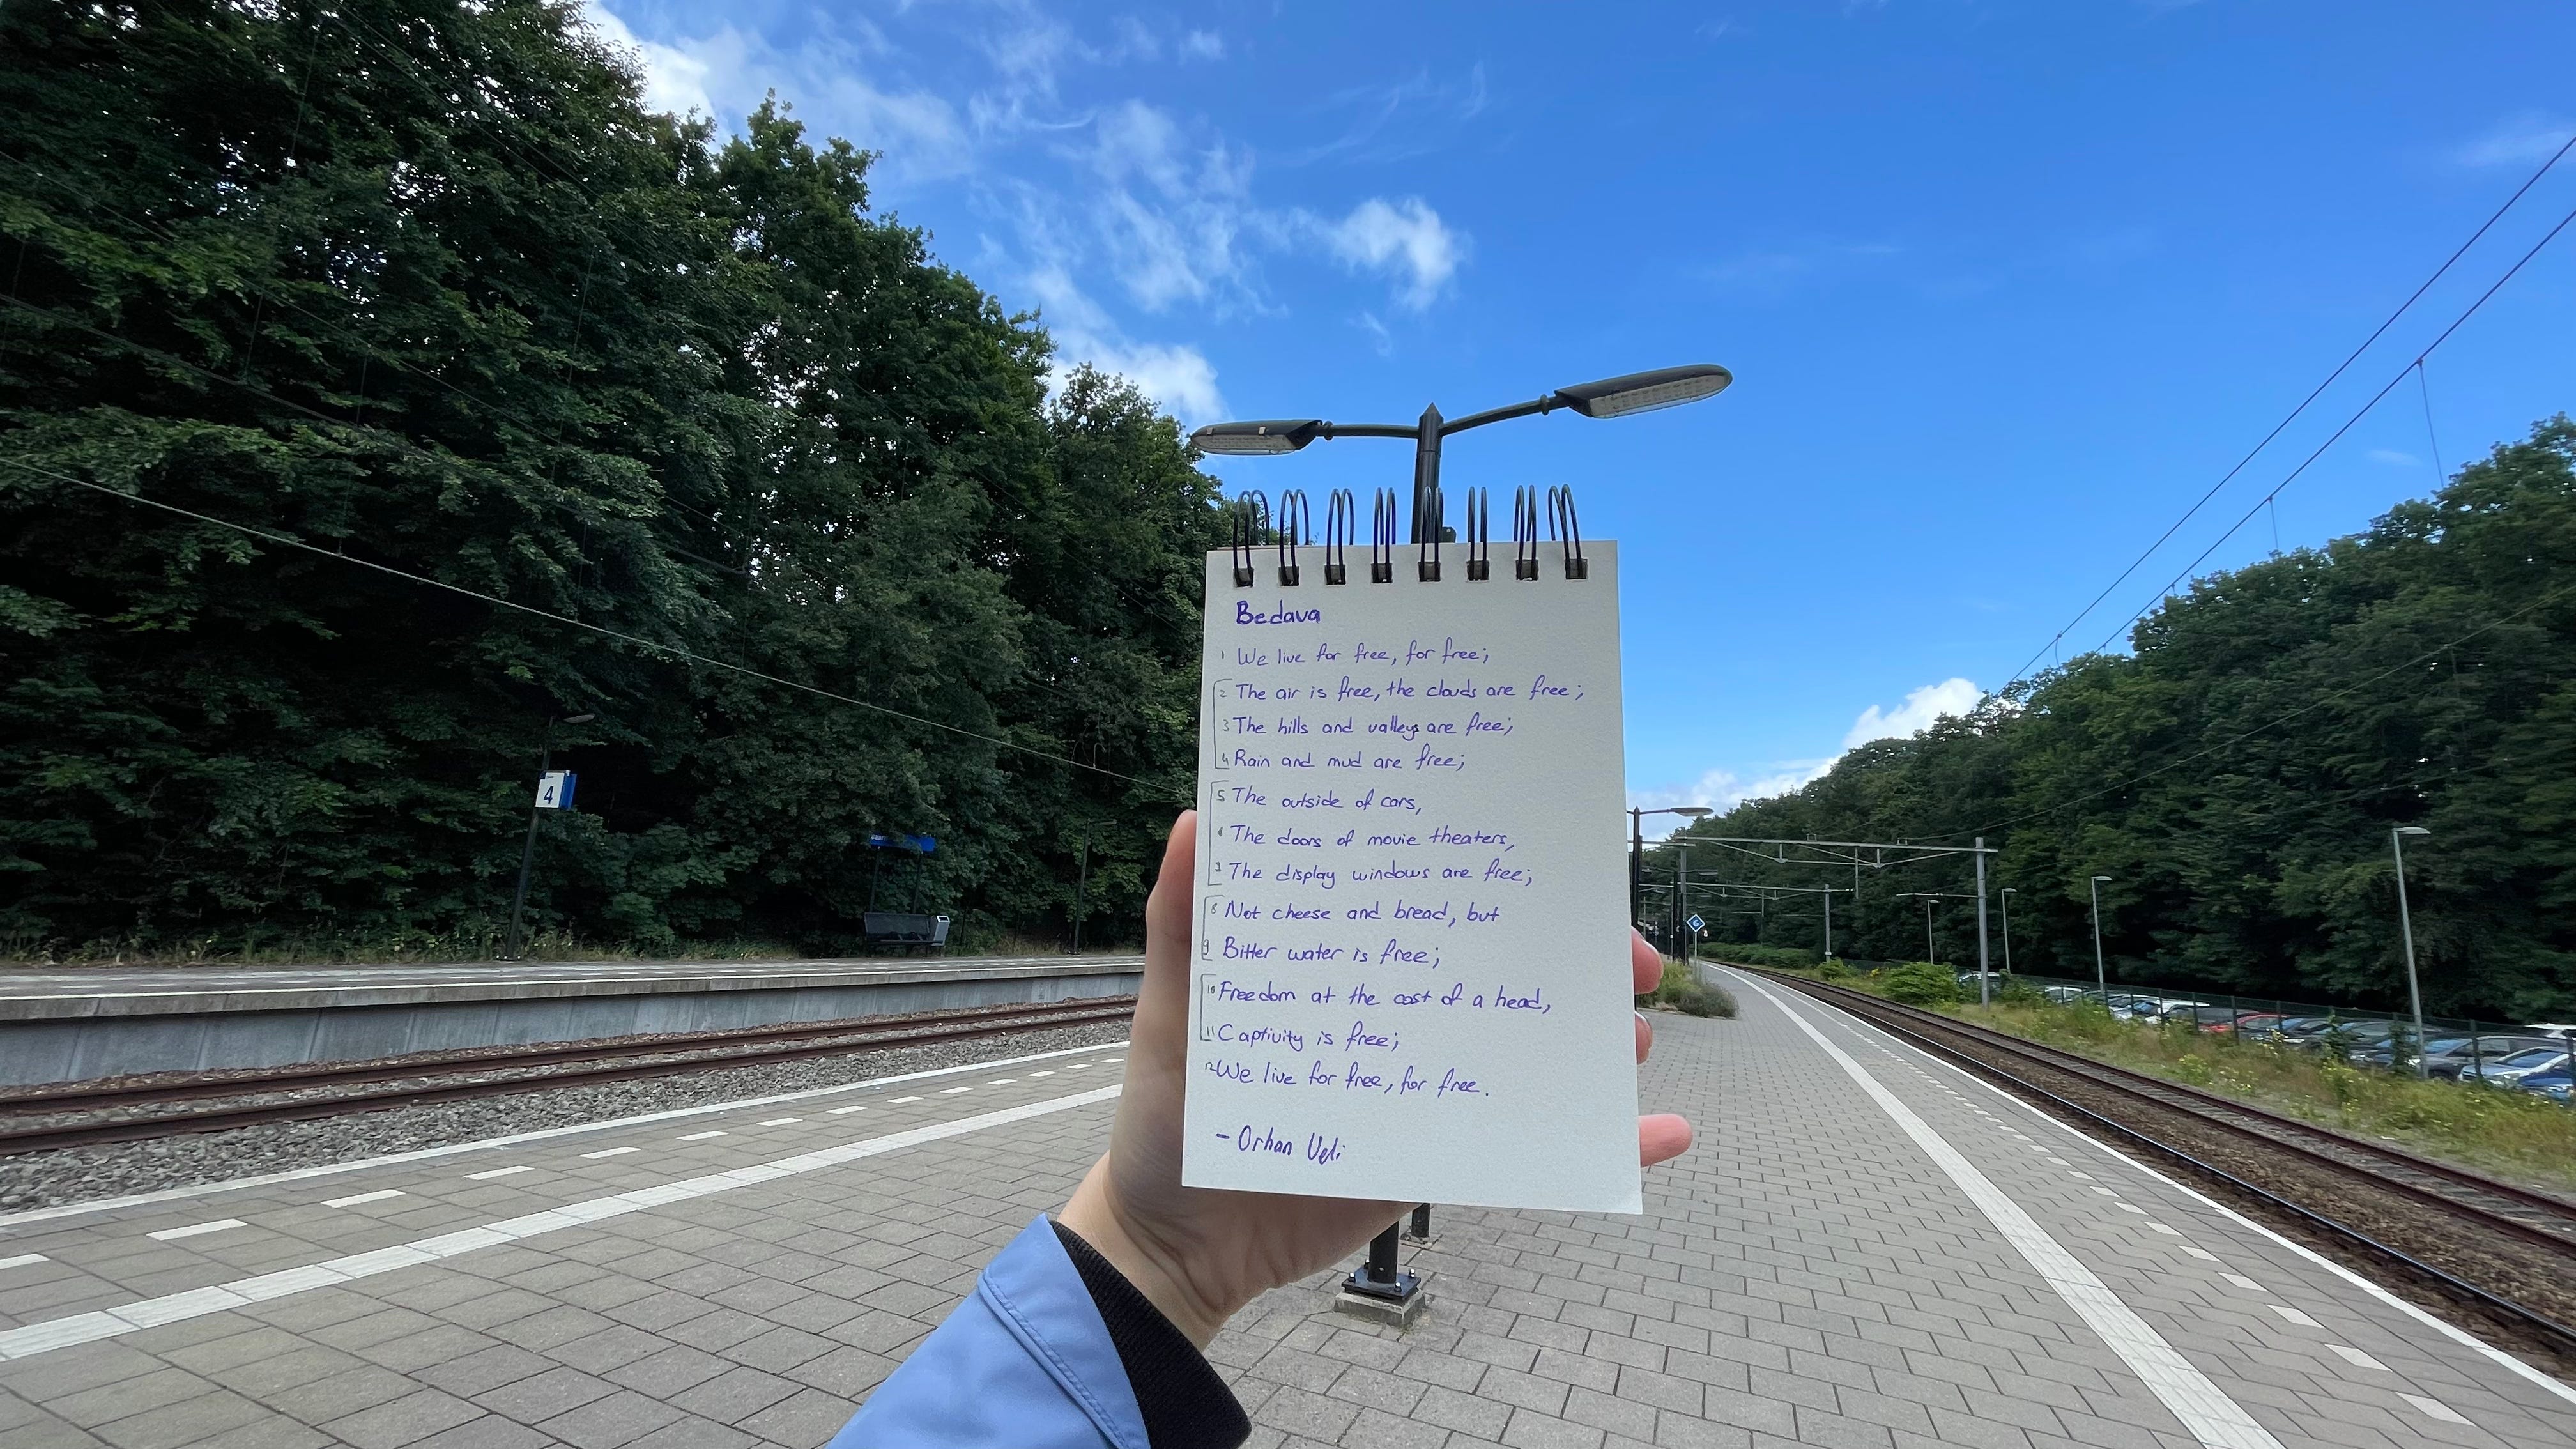 4
Bedava
1 We live for free, for free;
2 The air is free, the clouds are free;
3 The hills and valleys are free;
4 Rain and mud are free;
5 The outside of cars,
6 The doors of movie theaters,
7 The display windows are free;
8 Not cheese and bread, but
9 Bitter water is free;
10 Freedom at the cost of a head,
11 Captivity is free;
12 We live for free, for free.
- Orhan Veli
6